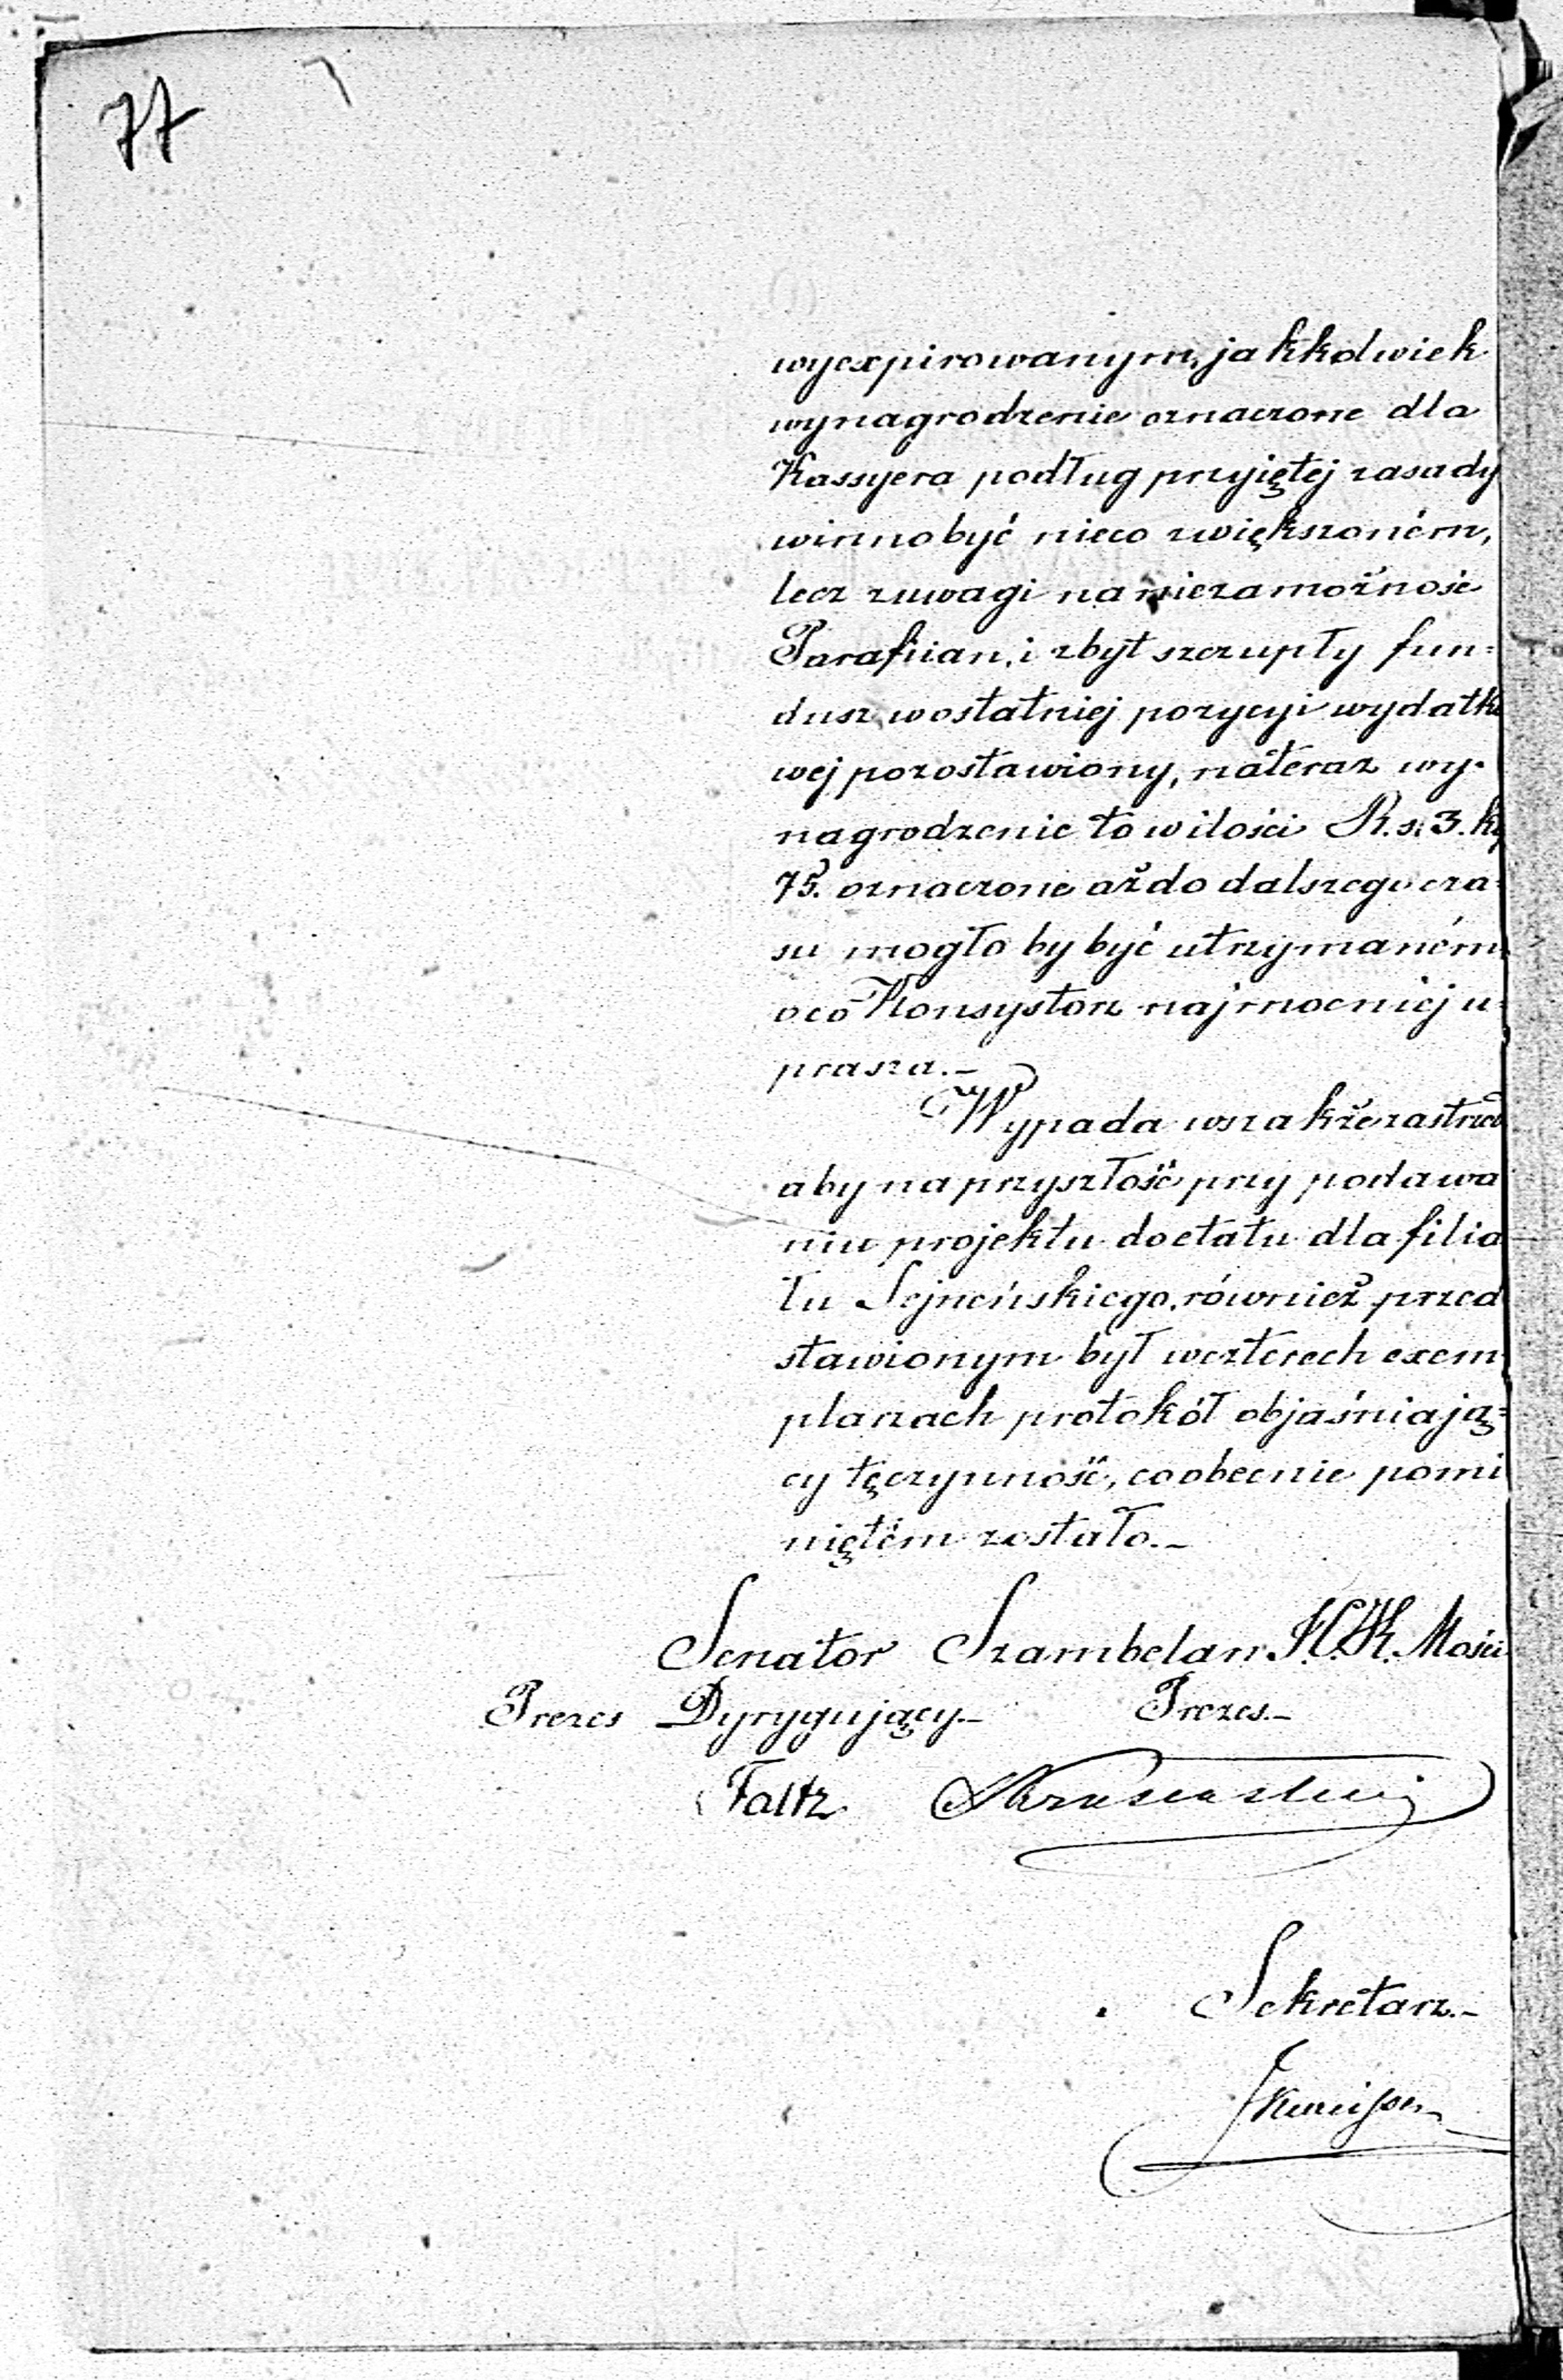 77
wyexpirowanym, jakkolwiek
wynagrodzenie oznaczone dla
Kassyera podług przyiętej zasady
winno być nieco zwiększoném,
lecz z uwagi na niezamożność
Parafiian, i zbyt szczupły fun=
dusz w ostatniej pozycyi wydatko
wej pozostawiony, nateraz wy=
nagrodzenie to w ilości R. s. 3. k.
75. oznaczone aż do dalszego cza=
su mogło by być utrzymaném
o co Konsystorz najmocniej u=
prasza.-
Wypada wszakże zastrzedz
aby na przyszłość przy podawa
niu projektu do etatu dla filia
łu Sejneńskiego, również przed
stawionym był w czterech exem
plarzach protokół objaśniają=
cy tę czynność, co obecnie pomi
niętém zostało.-
Senator Szambelan J. C. K. Mości
Prezes Dyrygujący.- Prezes.-
Faltz
Sekretarz.-